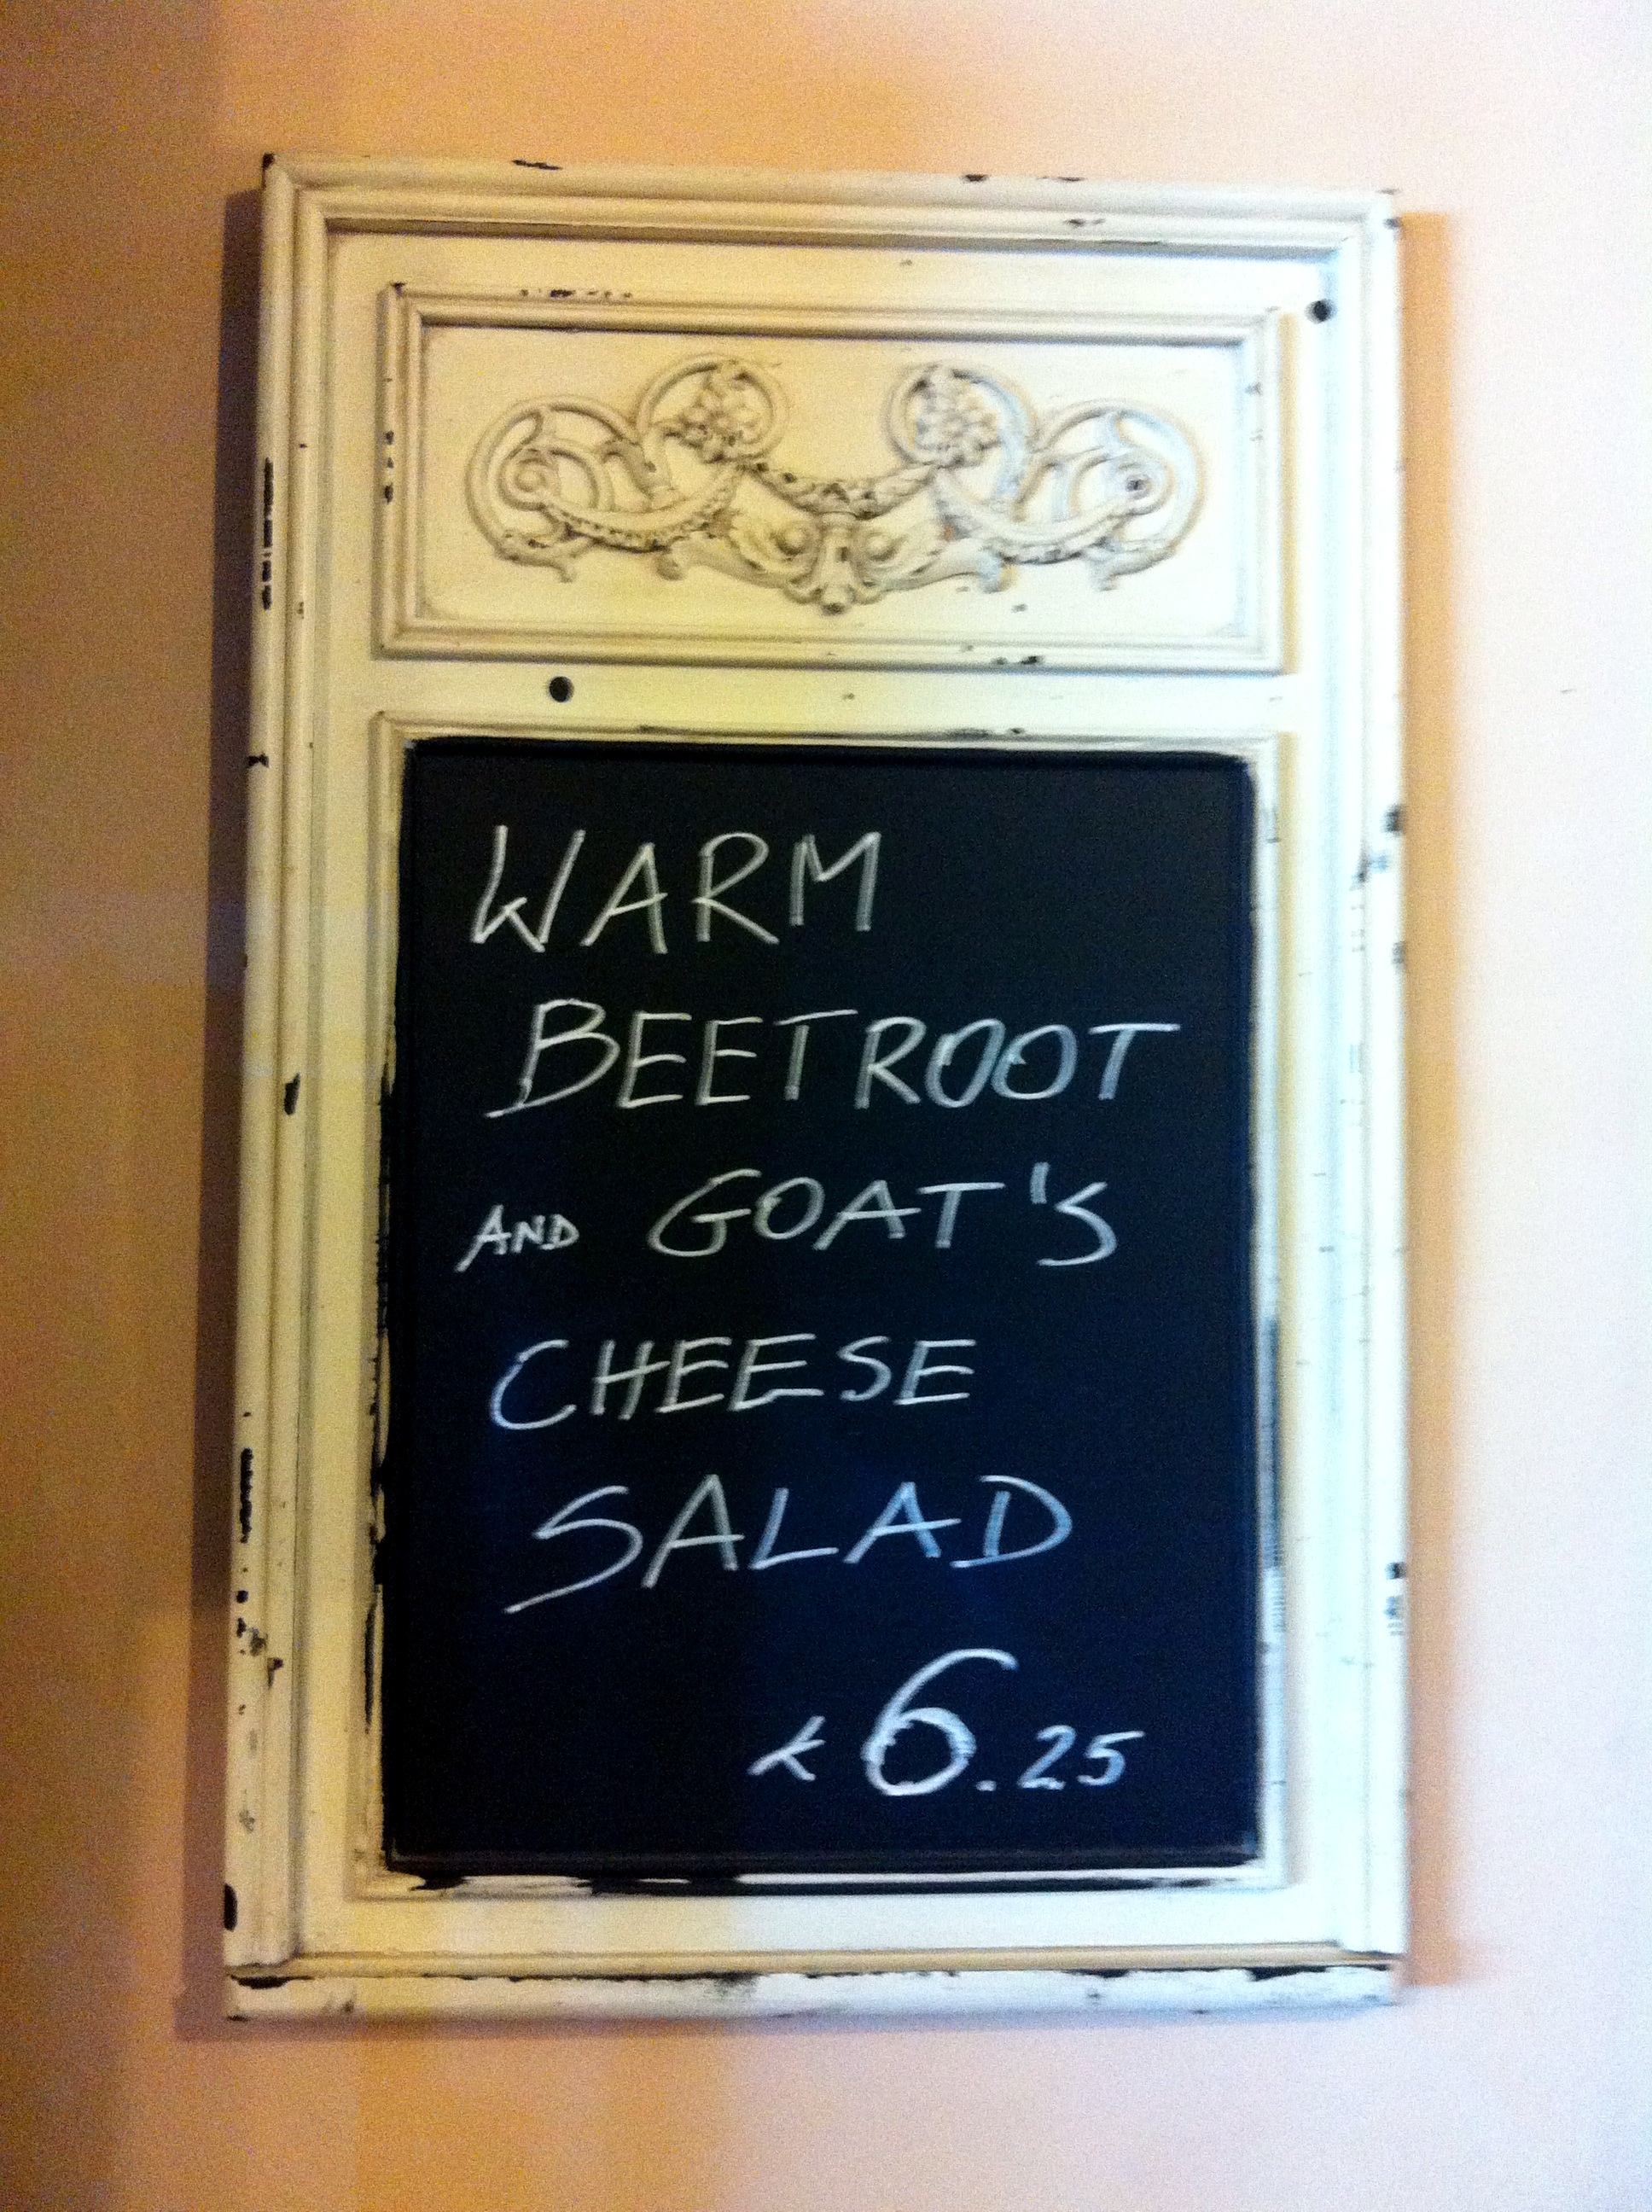 WARM
BEETROOT
AND GOAT'S
CHEESE
SALAD
£6.25